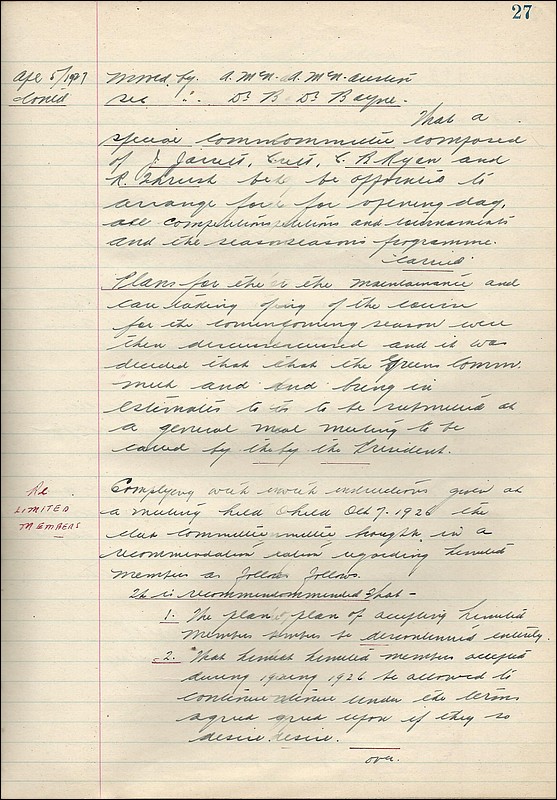 27
Apl 5/1927 Moved by. A. McN. A. McN. Austin
Cont'd Sec " Dr B Dr Bayne.
That a
special commcommittee composed
of J. Jarrett, C. B. Ryan and
R. Thrush be be appointed to
arrange for for opening day,
all competitionspetitions and tournaments
and the seasonseasons programme.
Carried
Plans for the the maintainance and
care taking of ing of the course
for the comingcoming season were
then discusscussed and it was
decided that that the Greens Comm.
meet and and bring in
estimates to to be submitted at
a general meet meeting to be
called by the by the President.
Re Complying with with instructions given at
LIMITED a meeting held held Oct 7. 1926 the
MEMBERS club committee mmittee brought in a
recommendation dation regarding limited
members as follows follows.
It is recommenommended that -
1. The plan plan of accepting limited
members mbers be discontinued entirely.
2. "That limited limited members accepted
during 19 ing 1926 be allowed to
continue tinue under the terms
agreed greed upon if they so
desire. desire.
over.